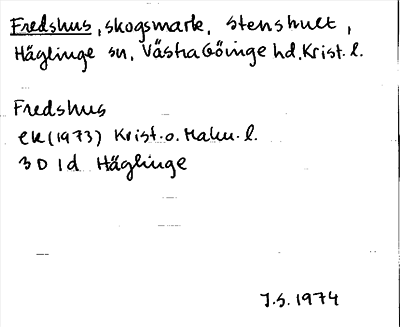 Fredshus, skogsmark, Stenshult,
Häglinge sn, Västra Göinge hd. Krist. l.
Fredshus
ek (1973) Krist. o. Malm. l.
3D 1d Häglinge
J.S. 1974